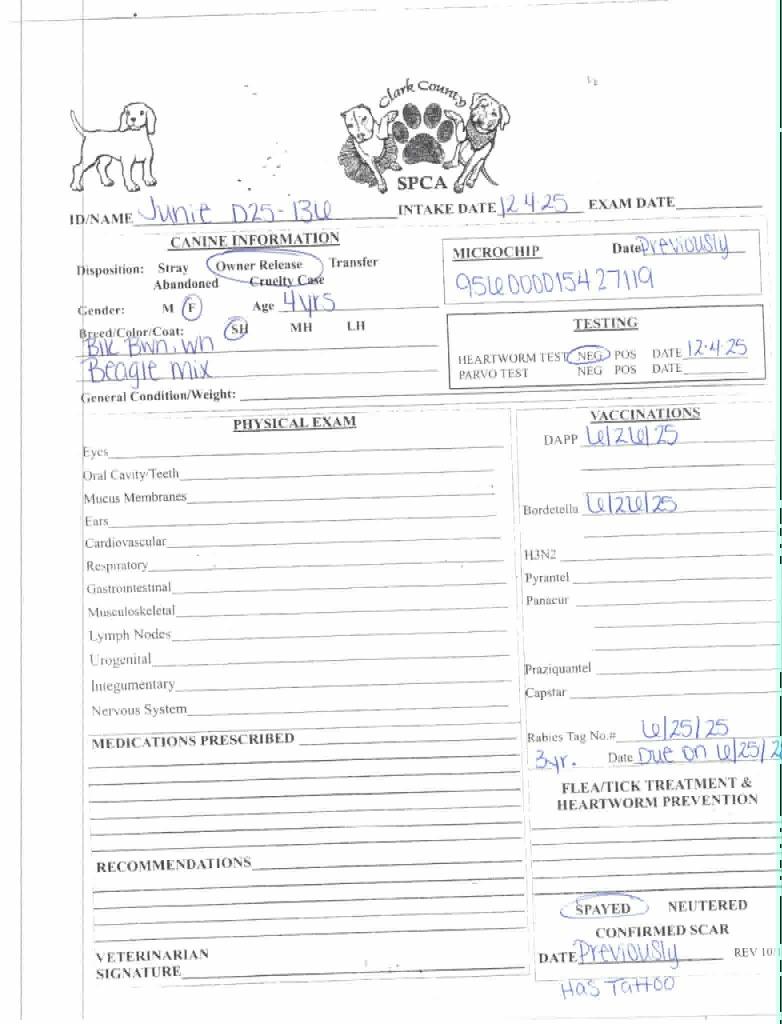 Clark County
SPCA
ID/NAME Junie D25-136 INTAKE DATE 12.4.25 EXAM DATE
CANINE INFORMATION
Disposition: Stray Owner Release Transfer
Abandoned Cruelty Case
Gender: M F Age 4yrs
Breed/Color/Coat: SH MH LH
Blk Bwn, wn
Beagle mix
General Condition/Weight:
MICROCHIP Date Previously
956000015427119
TESTING
HEARTWORM TEST NEG POS DATE 12.4.25
PARVO TEST NEG POS DATE
PHYSICAL EXAM
Eyes
Oral Cavity/Teeth
Mucus Membranes
Ears
Cardiovascular
Respiratory
Gastrointestinal
Musculoskeletal
Lymph Nodes
Urogenital
Integumentary
Nervous System
MEDICATIONS PRESCRIBED
RECOMMENDATIONS
VETERINARIAN
SIGNATURE
VACCINATIONS
DAPP 6/26/25
Bordetella 6/26/25
H3N2
Pyrantel
Panacur
Praziquantel
Capstar
Rabies Tag No.# 6/25/25
3yr. Date Due on 6/25/2
FLEA/TICK TREATMENT &
HEARTWORM PREVENTION
SPAYED NEUTERED
CONFIRMED SCAR
DATE Previously REV 10/
Has Tattoo